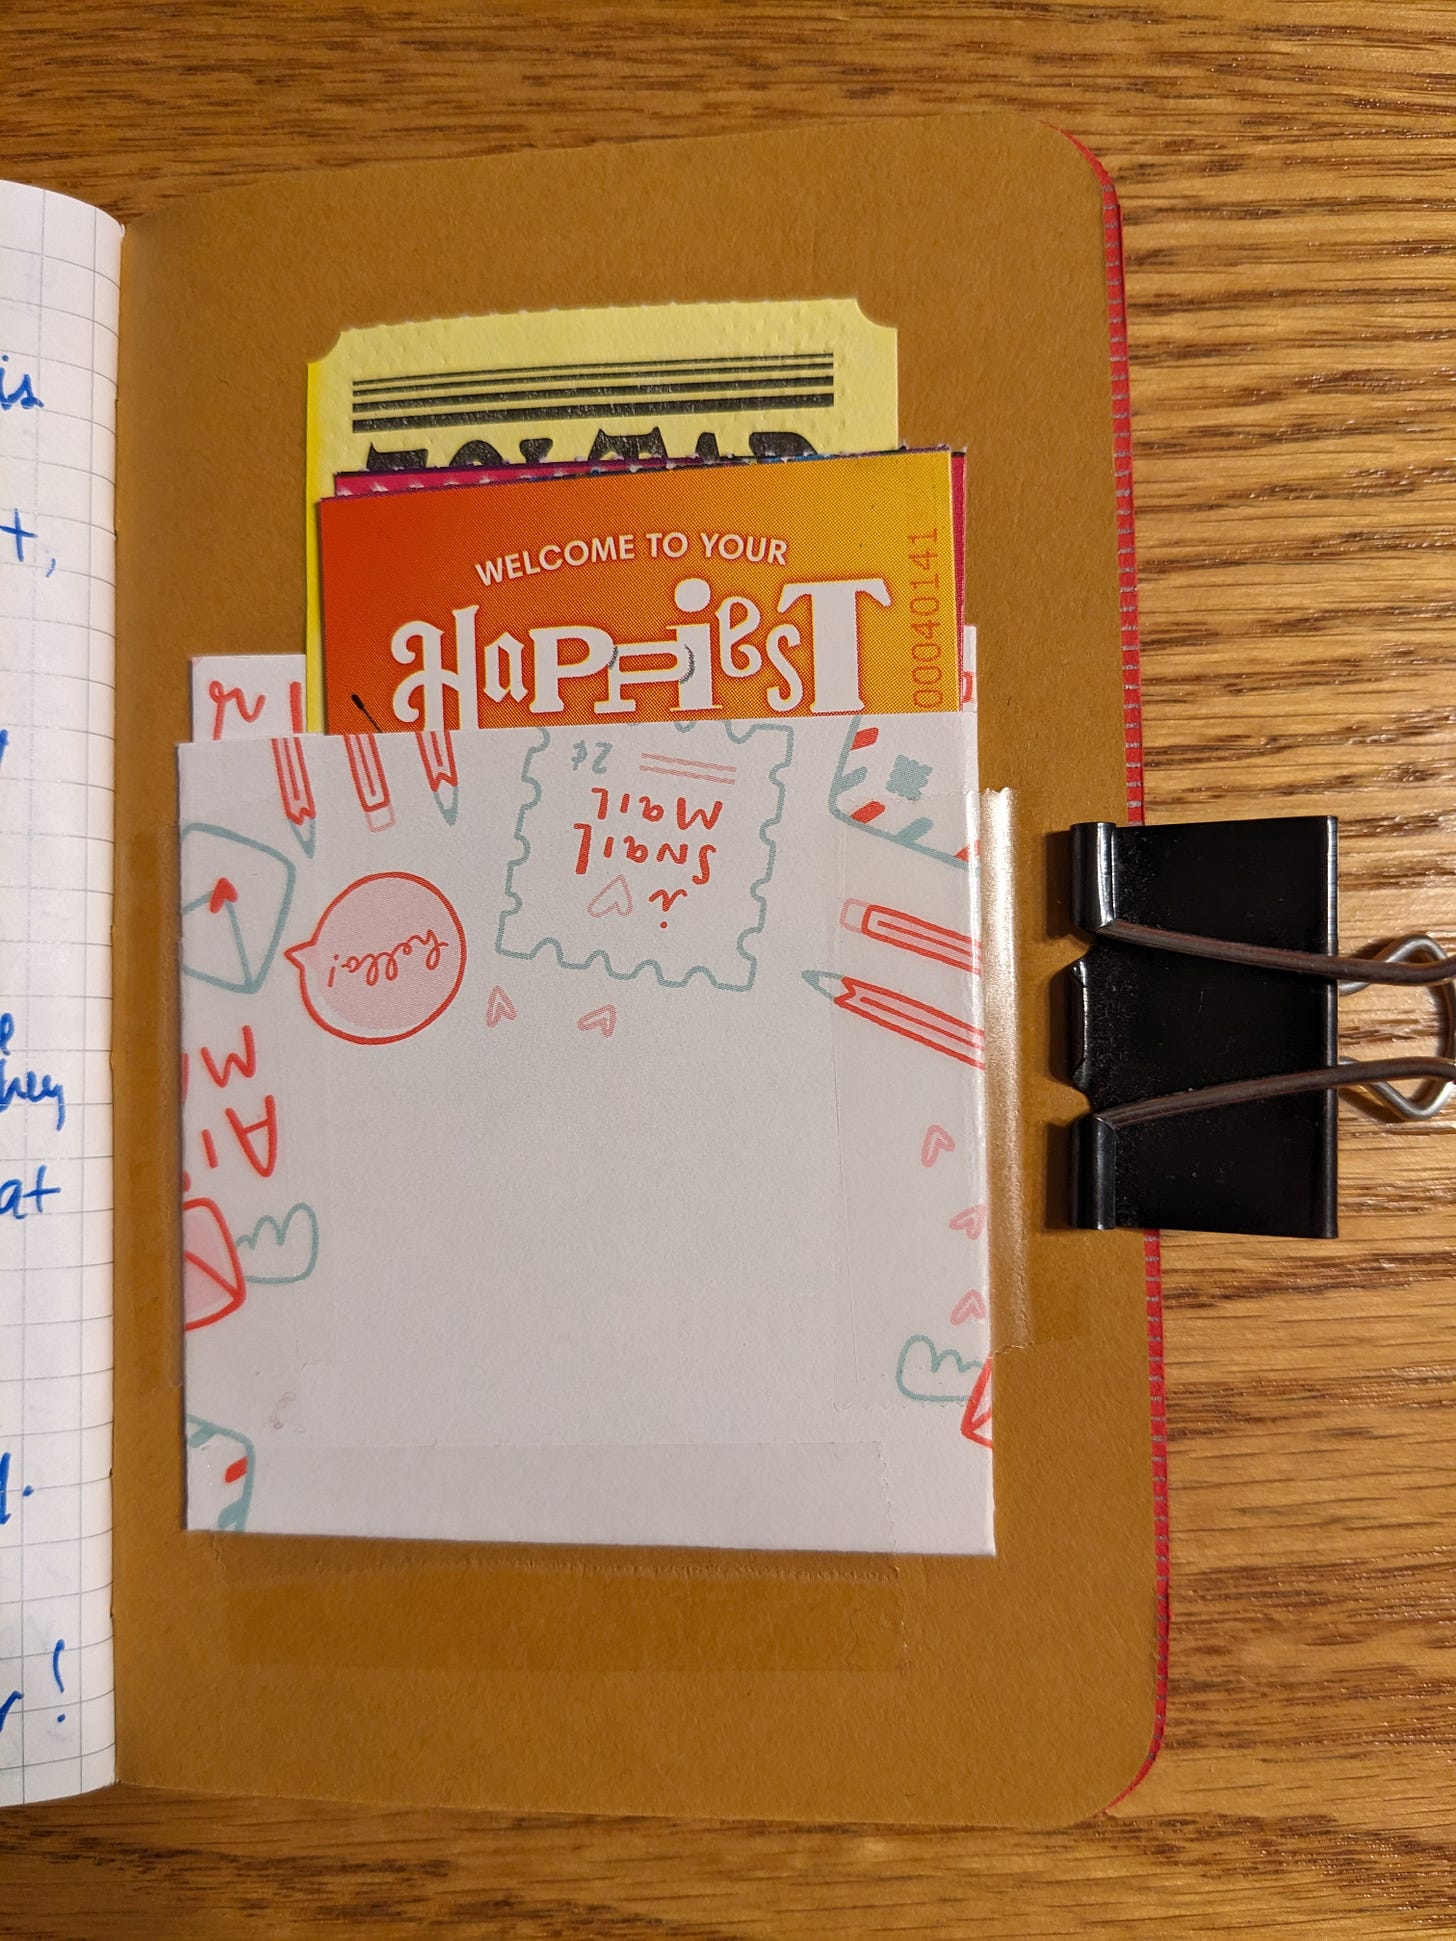 is
t,
hey
at
!
WELCOME TO YOUR
HaPPiesT
00040141
2¢
i
SNaiL
MaiL
hello!
MAi